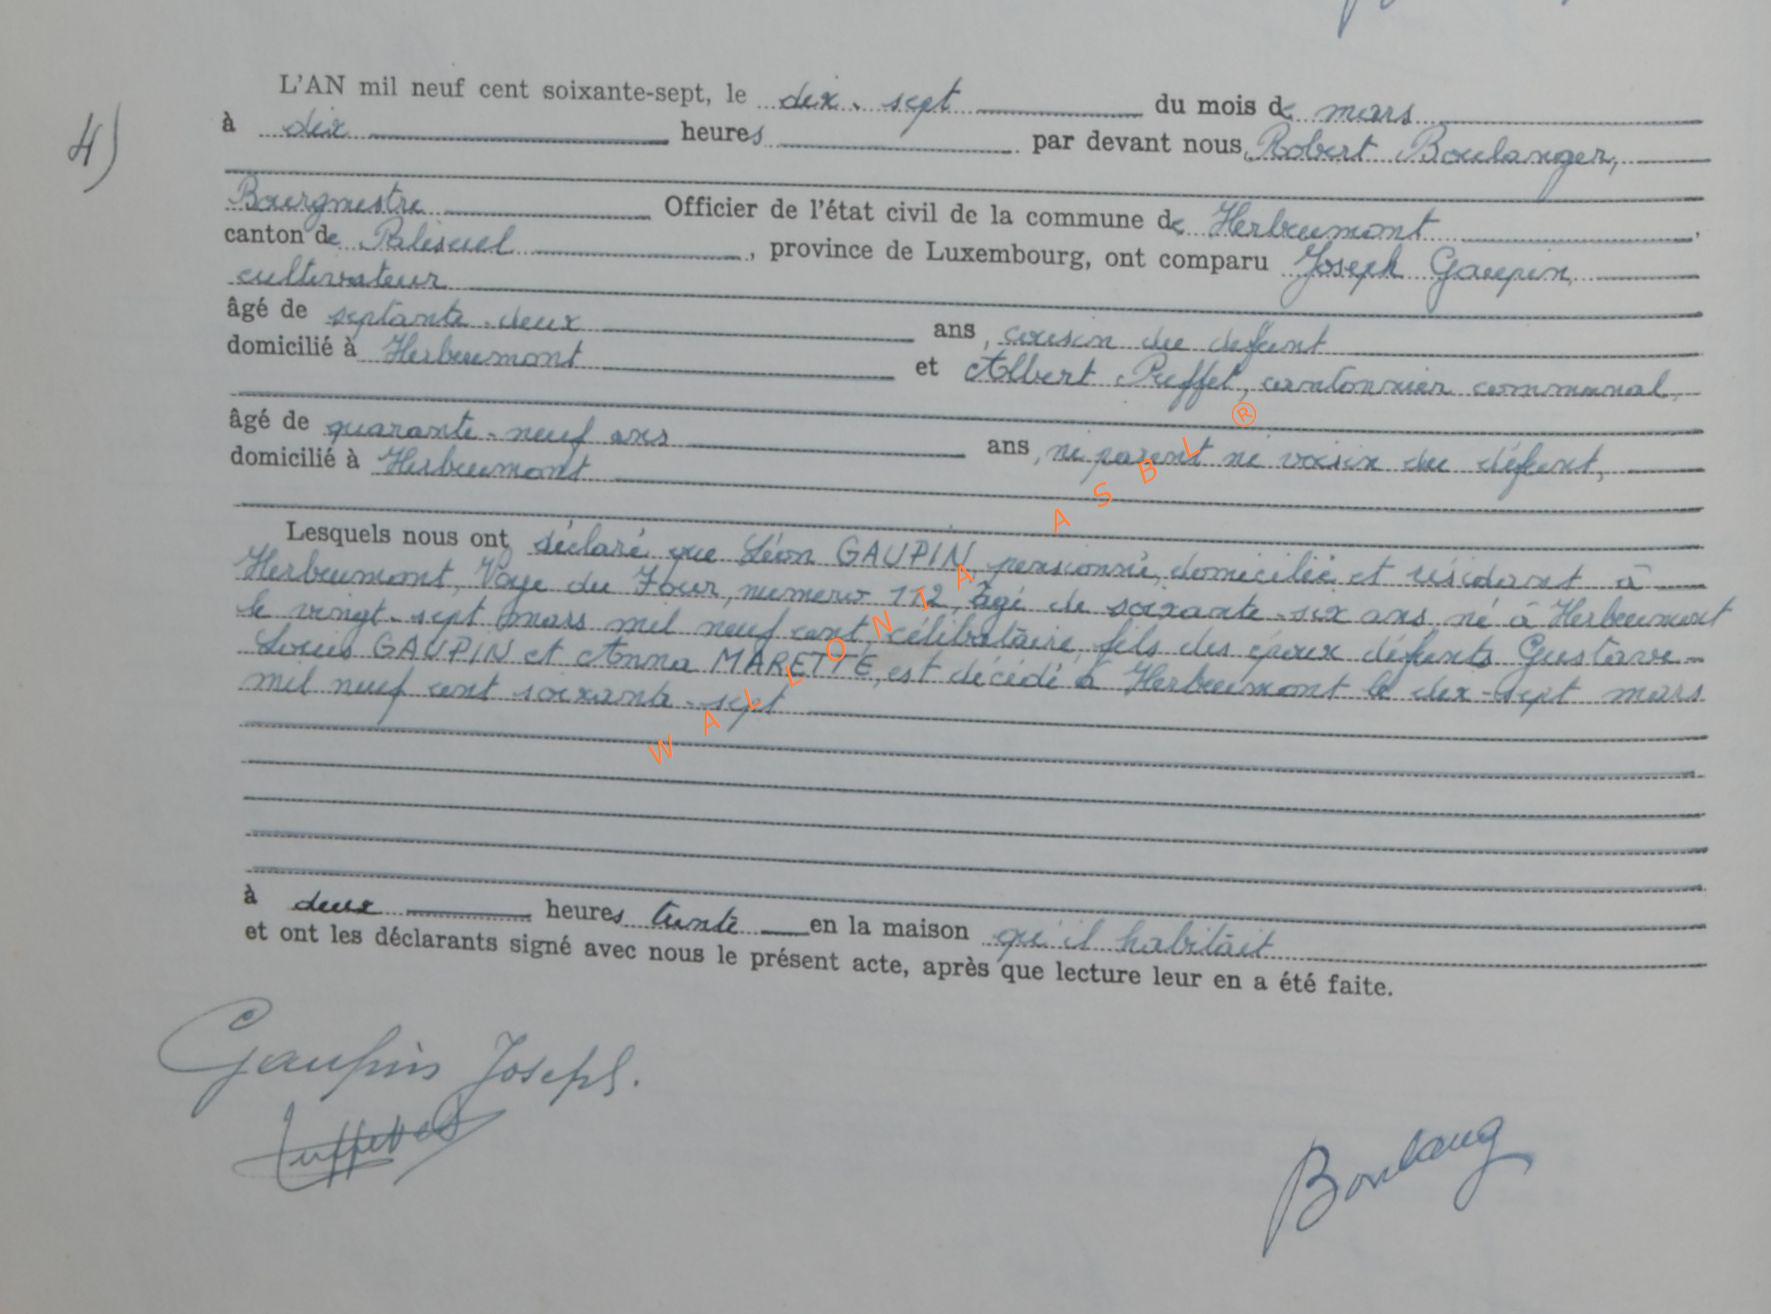 L'AN mil neuf cent soixante-sept, le dix-sept du mois de mars
4)
à dix heures par devant nous, Robert Boulanger,
Bourgmestre Officier de l'état civil de la commune de Herbeumont,
canton de Paliseul, province de Luxembourg, ont comparu Joseph Gaupin,
cultivateur
âgé de septante-deux ans, cousin du défunt
domicilié à Herbeumont et Albert Puffet, cantonnier communal,
âgé de quarante-neuf ans ans, ni parent ni voisin du défunt,
domicilié à Herbeumont
Lesquels nous ont déclaré que Léon GAUPIN, pensionné, domicilié et résidant à
Herbeumont, Voye du Four, numéro 112, âgé de soixante-six ans né à Herbeumont
le vingt-sept mars mil neuf cent, célibataire, fils des époux défunts Gustave
Louis GAUPIN et Anna MARETTE, est décédé à Herbeumont le dix-sept mars
mil neuf cent soixante-sept
WALLONIA ASBL ®
à deux heures trente en la maison qu'il habitait
et ont les déclarants signé avec nous le présent acte, après que lecture leur en a été faite.
Gaupin Joseph.
Boulang